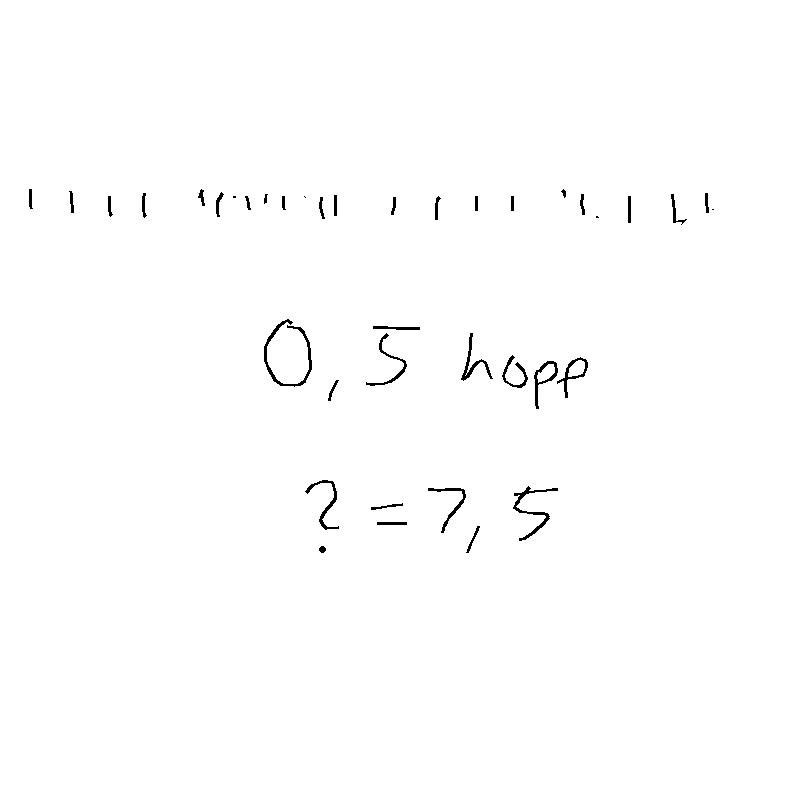 0,5 hopp
? = 7,5